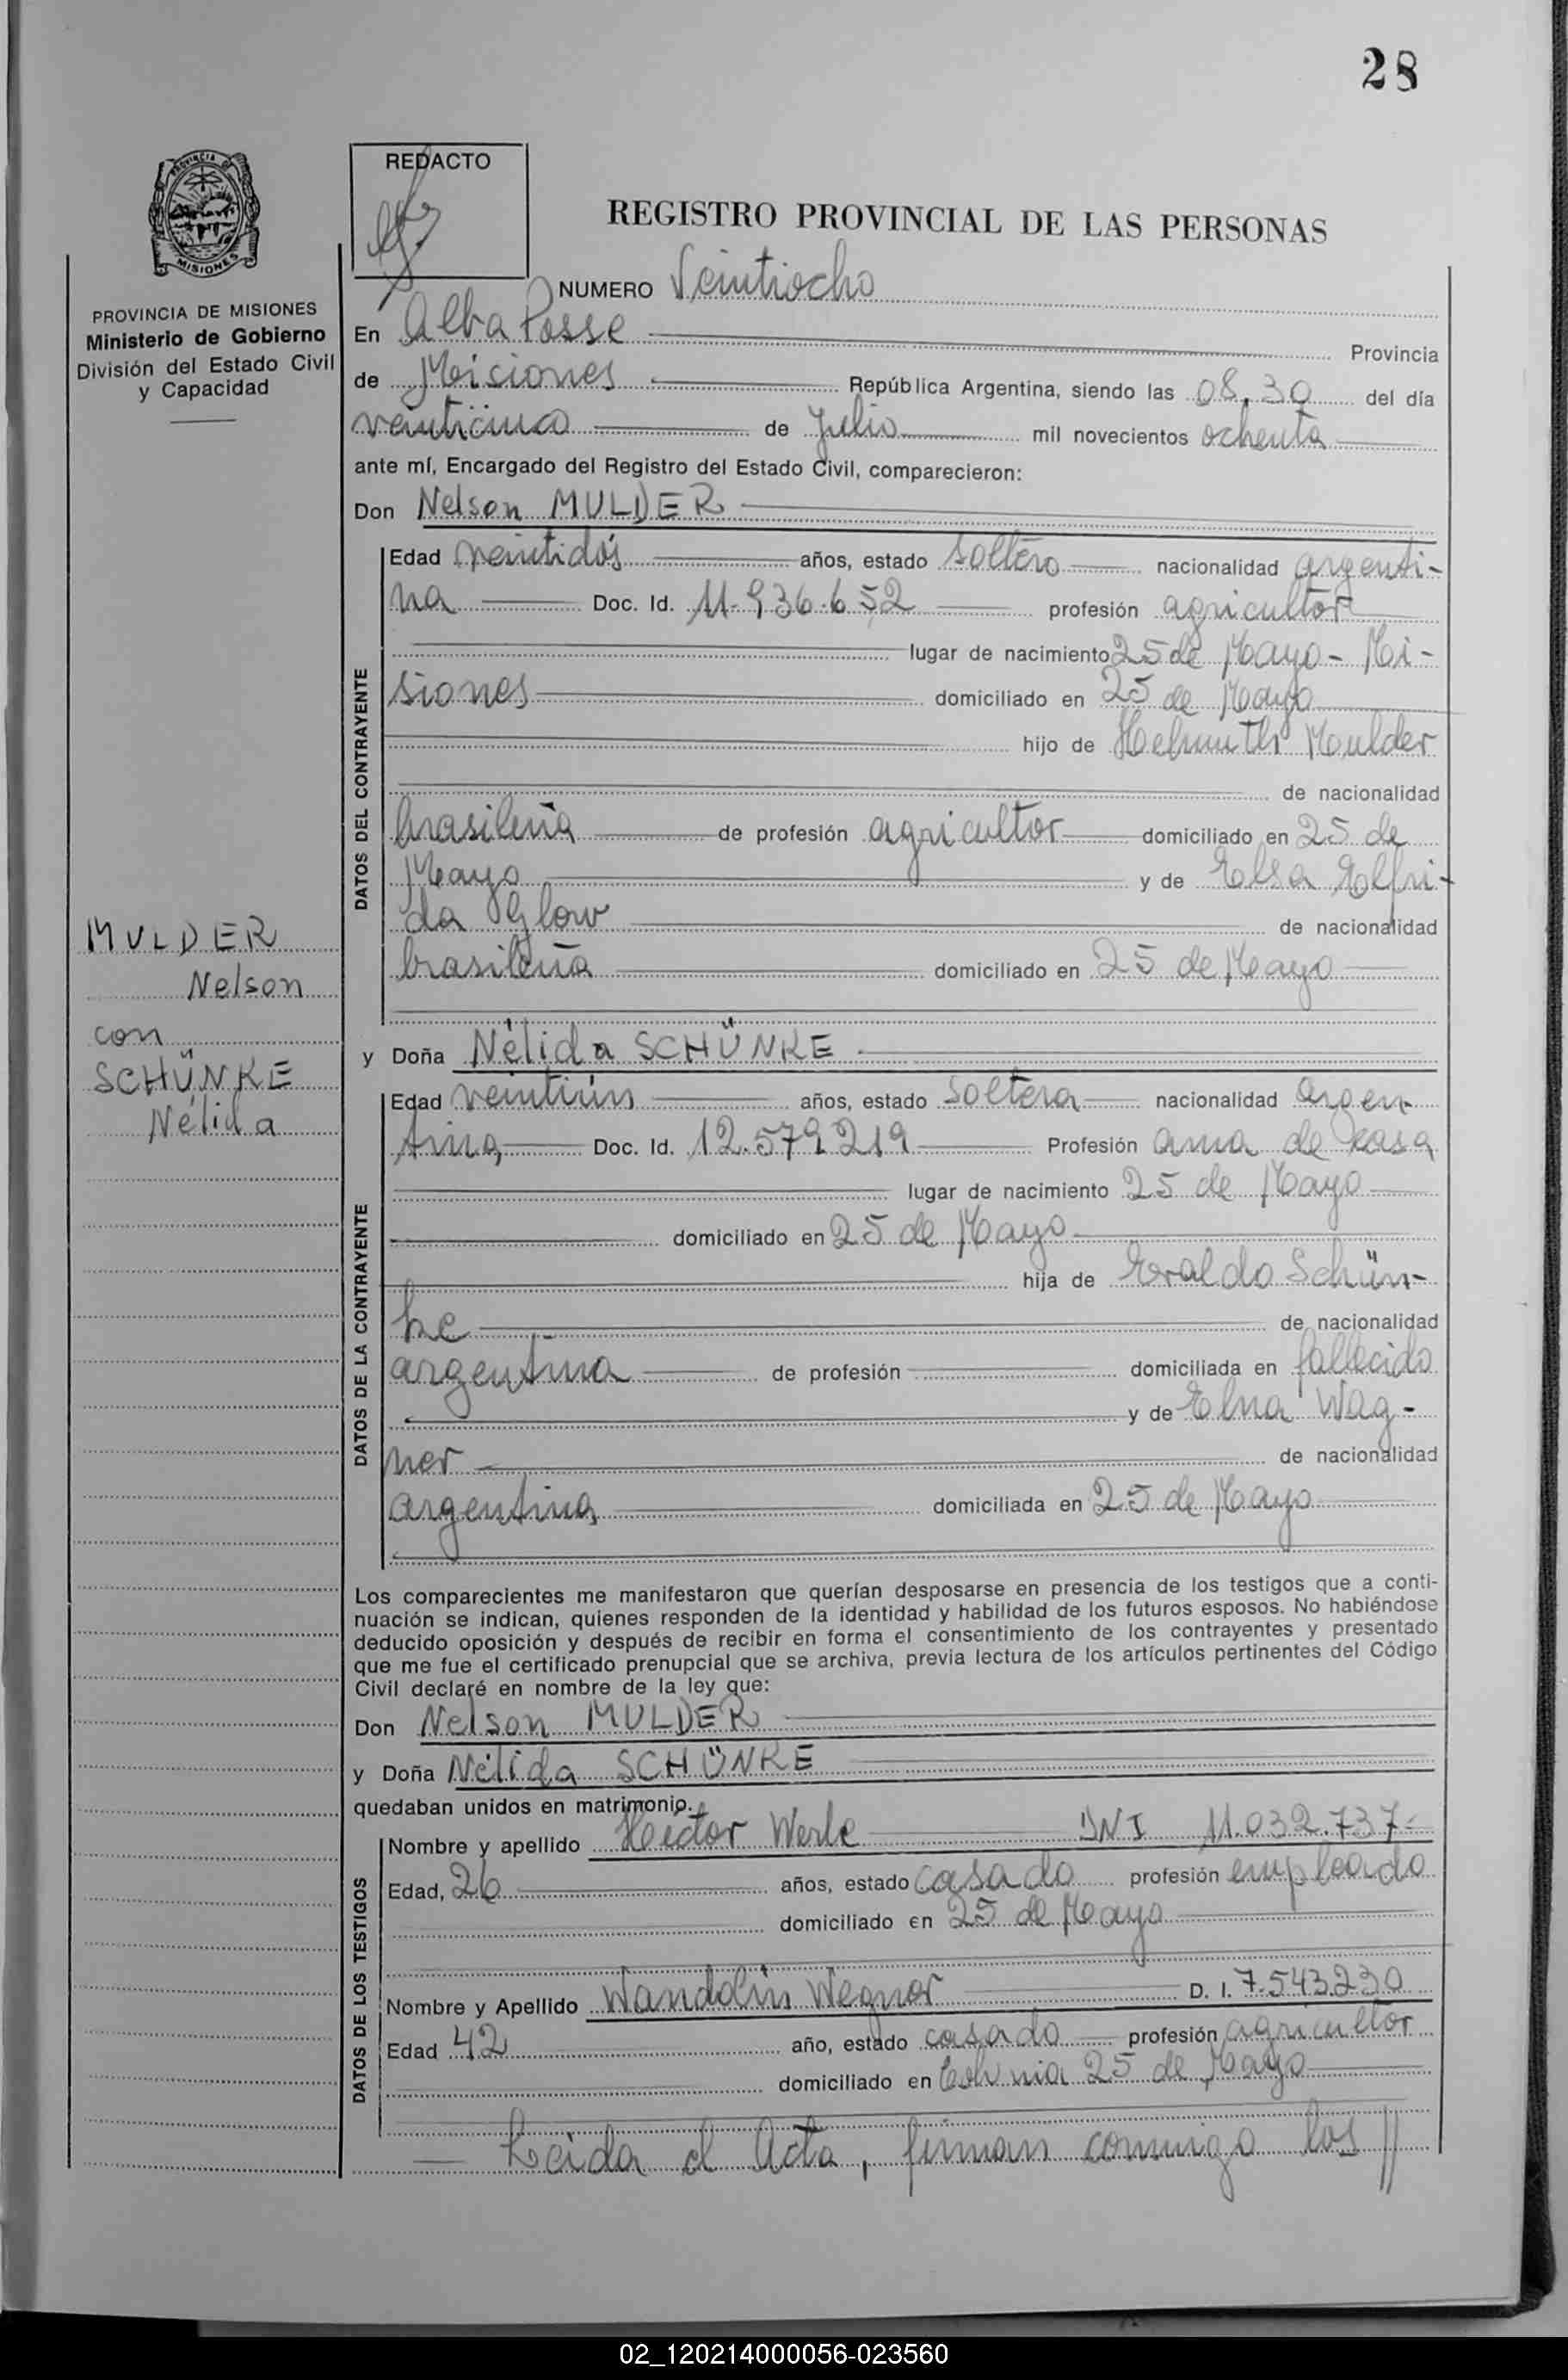 28
REDACTO
REGISTRO PROVINCIAL DE LAS PERSONAS
PROVINCIA DE MISIONES
Ministerio de Gobierno
División del Estado Civil
y Capacidad
NUMERO Veintiocho
En Alba Posse Provincia
de Misiones República Argentina, siendo las 08,30 del día
veinticinco de Julio mil novecientos ochenta
ante mí, Encargado del Registro del Estado Civil, comparecieron:
Don Nelson MULDER
DATOS DEL CONTRAYENTE
Edad veintidós años, estado soltero nacionalidad argenti-
na Doc. Id. 11.936.652 profesión agricultor
lugar de nacimiento 25 de Mayo - Mi-
siones domiciliado en 25 de Mayo
hijo de Helmuth Mulder
de nacionalidad
brasileña de profesión agricultor domiciliado en 25 de
Mayo y de Elsa Elfri-
da Glow de nacionalidad
brasileña domiciliado en 25 de Mayo
MULDER
Nelson
con
SCHÜNKE
Nélida
y Doña Nélida SCHÜNKE
DATOS DE LA CONTRAYENTE
Edad veintiún años, estado soltera nacionalidad argen
tina Doc. Id. 12.579.219 Profesión ama de casa
lugar de nacimiento 25 de Mayo
domiciliado en 25 de Mayo
hija de Eraldo Schün-
ke de nacionalidad
argentina de profesión domiciliada en fallecido
y de Elna Wag-
ner de nacionalidad
argentina domiciliada en 25 de Mayo
Los comparecientes me manifestaron que querían desposarse en presencia de los testigos que a conti-
nuación se indican, quienes responden de la identidad y habilidad de los futuros esposos. No habiéndose
deducido oposición y después de recibir en forma el consentimiento de los contrayentes y presentado
que me fue el certificado prenupcial que se archiva, previa lectura de los artículos pertinentes del Código
Civil declaré en nombre de la ley que:
Don Nelson MULDER
y Doña Nélida SCHÜNKE
quedaban unidos en matrimonio.
DATOS DE LOS TESTIGOS
Nombre y apellido Héctor Werle DNI 11.032.737-
Edad, 26 años, estado casado profesión empleado
domiciliado en 25 de Mayo
Nombre y Apellido Wandolin Wegner D. I. 7.543.230
Edad 42 año, estado casado profesión agricultor
domiciliado en Colonia 25 de Mayo
— Leida el Acta, firman conmigo los //
02_120214000056-023560